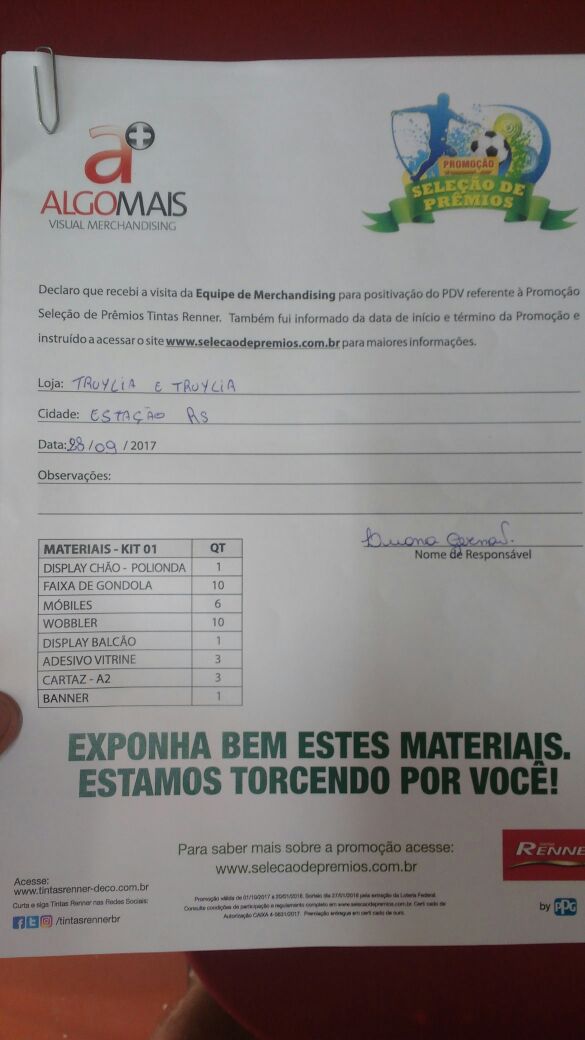 a+
ALGOMAIS
VISUAL MERCHANDISING
PROMOÇÃO
SELEÇÃO DE
PRÊMIOS
Declaro que recebi a visita da Equipe de Merchandising para positivação do PDV referente à Promoção
Seleção de Prêmios Tintas Renner. Também fui informado da data de início e término da Promoção e
instruído a acessar o site www.selecaodepremios.com.br para maiores informações.
Loja: TRUYLIA E TRUYLIA
Cidade: ESTAÇÃO RS
Data: 28/09/2017
Observações:
Nome de Responsável
MATERIAIS - KIT 01 QT
DISPLAY CHÃO - POLIONDA 1
FAIXA DE GONDOLA 10
MÓBILES 6
WOBBLER 10
DISPLAY BALCÃO 1
ADESIVO VITRINE 3
CARTAZ - A2 3
BANNER 1
EXPONHA BEM ESTES MATERIAIS.
ESTAMOS TORCENDO POR VOCÊ!
Para saber mais sobre a promoção acesse:
www.selecaodepremios.com.br
RENNE
Acesse:
www.tintasrenner-deco.com.br
Curta e siga Tintas Renner nas Redes Sociais:
/tintasrennerbr
Promoção válida de 01/10/2017 a 20/01/2018. Sorteio dia 27/01/2018 pela extração da Loteria Federal.
Consulte condições de participação e regulamento completo em www.selecaodepremios.com.br. Certificado de
Autorização CAIXA 4-0631/2017. Premiação entregue em certificado de ouro.
by PPG